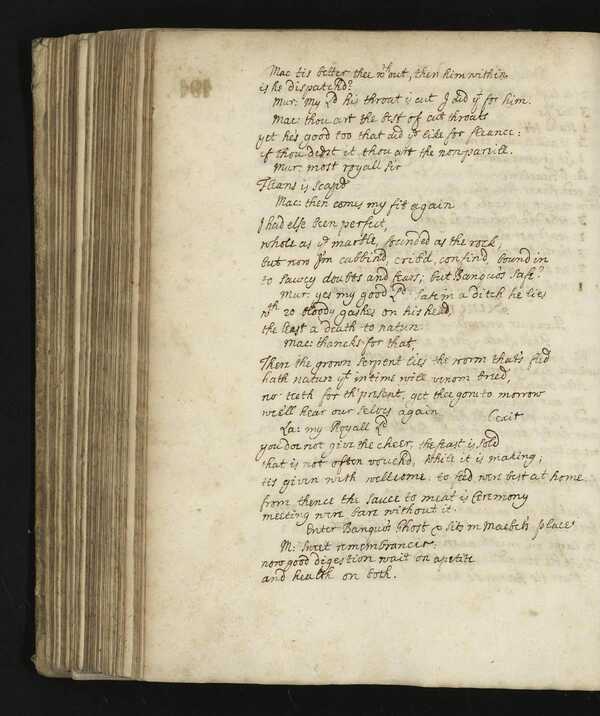 Mac tis better thee wthout, then him within
is he dispatchd?
Mur: My Ld his throat is cut I did yt for him.
Mac: thou art the best of cut throats
yet he's good too that did ye like for fleance:
if thou didst it thou art the nonpareill.
Mur: most royall sir
Fleans is scapd
Mac: then comes my fit again
I had else been perfect,
whole as ye marble, founded as the rock,
but now I'm cabbind, cribd, confind, bound in
to sawcy doubts and fears; but Banquo's safe?
Mur: yes my good Ld: safe in a ditch he lies
wth 20 bloody gashes on his head,
the least a death to nature
Mac: thancks for that,
There the grown serpent lies the worm that's fled
hath nature yt in time will venom breed,
no teeth for th' present, get thee gone to morrow
wee'll hear our selves again (exit
La: my Royall Ld
you doe not give the cheer, the feast is sold
that is not often vouchd, while it is making;
tis given with wellcome: to feed were best at home
from thence the sauce to meat is Ceremony
meeting were bare without it.
Enter Banquo's Ghost & sits in Macbeth's place
M: sweet remembrancer:
now good digestion wait on apetite
and health on both.